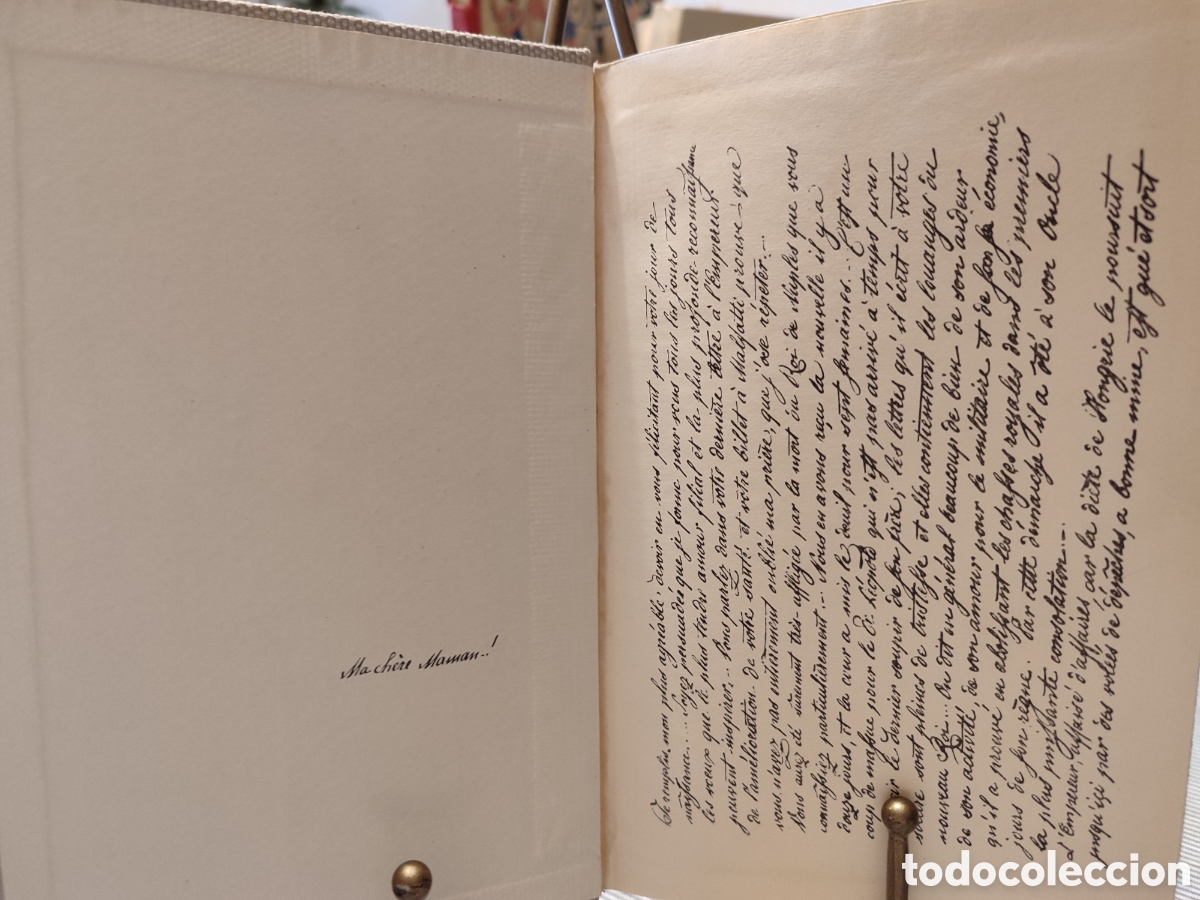 Ma chère Maman..!
Je remplis, mon plus agréable devoir en vous félicitant pour votre jour de
naissance.... soyez persuadés que je forme pour vous tous les jours tous
les voeux que le plus tendre amour filial et la plus profonde reconnaissance
peuvent inspirer... Vous parlez dans votre dernière lettre à l'Empereur
de l'amélioration de votre santé et votre billet à Malfatti prouve que
vous n'avez pas entièrement oublié ma prière, que j'ose répéter...
Vous avez été sûrement très affligée par la mort du Roi de Naples que vous
connaissiez particulièrement... Nous en avons reçu la nouvelle il y a
douze jours, et la cour a mis le deuil pour sept semaines... C'est un
coup de massue pour le Pr. Léopold qui n'est pas arrivé à temps pour
le dernier soupir de son frère; les lettres qu'il écrit à votre
sont pleines de tristesse et elles contiennent les louanges du
nouveau Roi... On dit en général beaucoup de bien de son ardeur
de son activité, de son amour pour le militaire et de son économie,
qu'il a prouvé en abolissant les chasses royales dans les premiers
jours de son règne. Par cette démarche il a ôté à son Oncle
la plus puissante consolation...
L'Empereur, affaissé d'affaires car la diète de Hongrie le poursuit
jusqu'içi par des volées de dépêches, a bonne mine, est gai et sort
todocoleccion